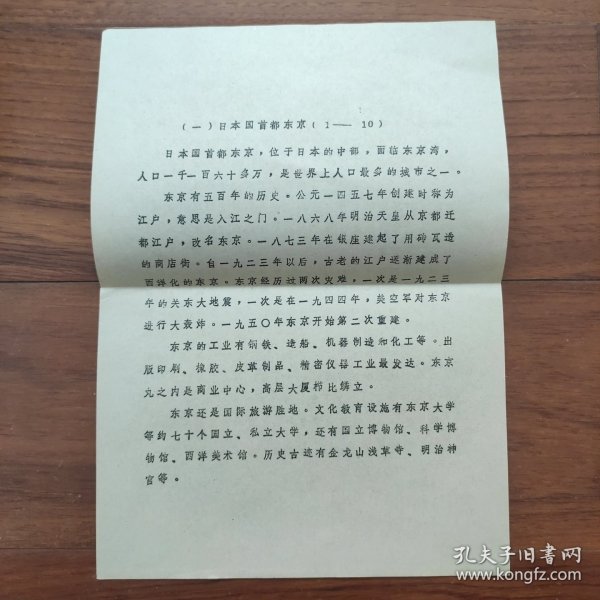 (一)日本国首都东京(1—10)
日本国首都东京，位于日本的中部，面临东京湾，
人口一千一百六十多万，是世界上人口最多的城市之一。
东京有五百年的历史。公元一四五七年创建时称为
江户，意思是入江之门。一八六八年明治天皇从京都迁
都江户，改名东京。一八七三年在银座建起了用砖瓦造
的商店街。自一九二三年以后，古老的江户逐渐建成了
西洋化的东京。东京经历过两次灾难，一次是一九二三
年的关东大地震，一次是在一九四四年，美空军对东京
进行大轰炸。一九五〇年东京开始第二次重建。
东京的工业有钢铁、造船、机器制造和化工等。出
版印刷、橡胶、皮革制品、精密仪器工业最发达。东京
丸之内是商业中心，高层大厦栉比鳞立。
东京还是国际旅游胜地。文化教育设施有东京大学
等约七十个国立、私立大学，还有国立博物馆、科学博
物馆、西洋美术馆。历史古迹有金龙山浅草寺、明治神
宫等。
孔夫子旧书网
www.kongfz.com